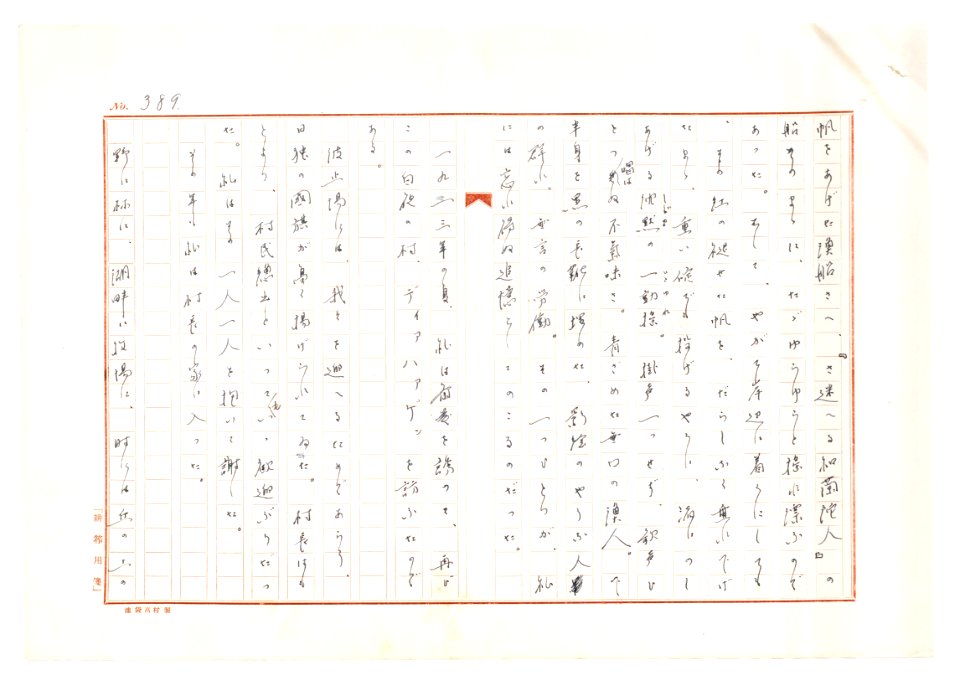 No. 389.
帆をあげた漁船さへ、『さ迷へる和蘭陀人』の
船そのままに、たゞゆらゆらと揺れ漂ふので
あつた。そして、やがて岸辺に着くにしても
、その紅の褪せた帆を、だらしなく垂れさげ
たまゝ、重い碇を投げるやうに、
あげる沈黙の一動揺。掛声一つせず、歓声
とつ唄はぬ不気味さ。青ざめた無口の漁人。
半身を黒の長靴に埋めた、影絵のやうな人
の群れ、無言の労働。その一つ一つが、私
には忘れ得ぬ追憶としてのこるのだつた。
一九三三年の夏、私は家妻を誘つて、再び
この白砂の村、ディアハアゲンを訪ふたので
ある。
波止場には、我々を迎へるためであらう、
日独の国旗が高く掲げられてゐた。村長はも
とより、村民総出といつていい歓迎ぶりだつ
た。私はその一人一人を抱いて謝した。
その年も私は村長の家に入つた。
野に林に、湖畔に波場に、時には丘の上の